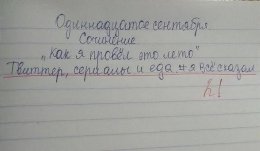 Одиннадцатое сентября
Сочинение
"Как я провёл это лето"
Твиттер, сериалы и еда. Я всё сказал